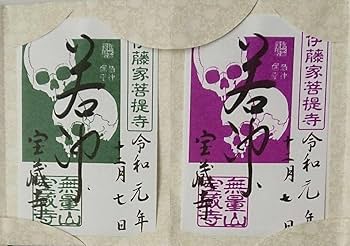 伊藤家菩提寺
若冲
令和元年
十二月七日
宝蔵寺
無量山
宝蔵寺
伊藤家菩提寺
若冲
令和元年
十二月七日
宝蔵寺
無量山
宝蔵寺